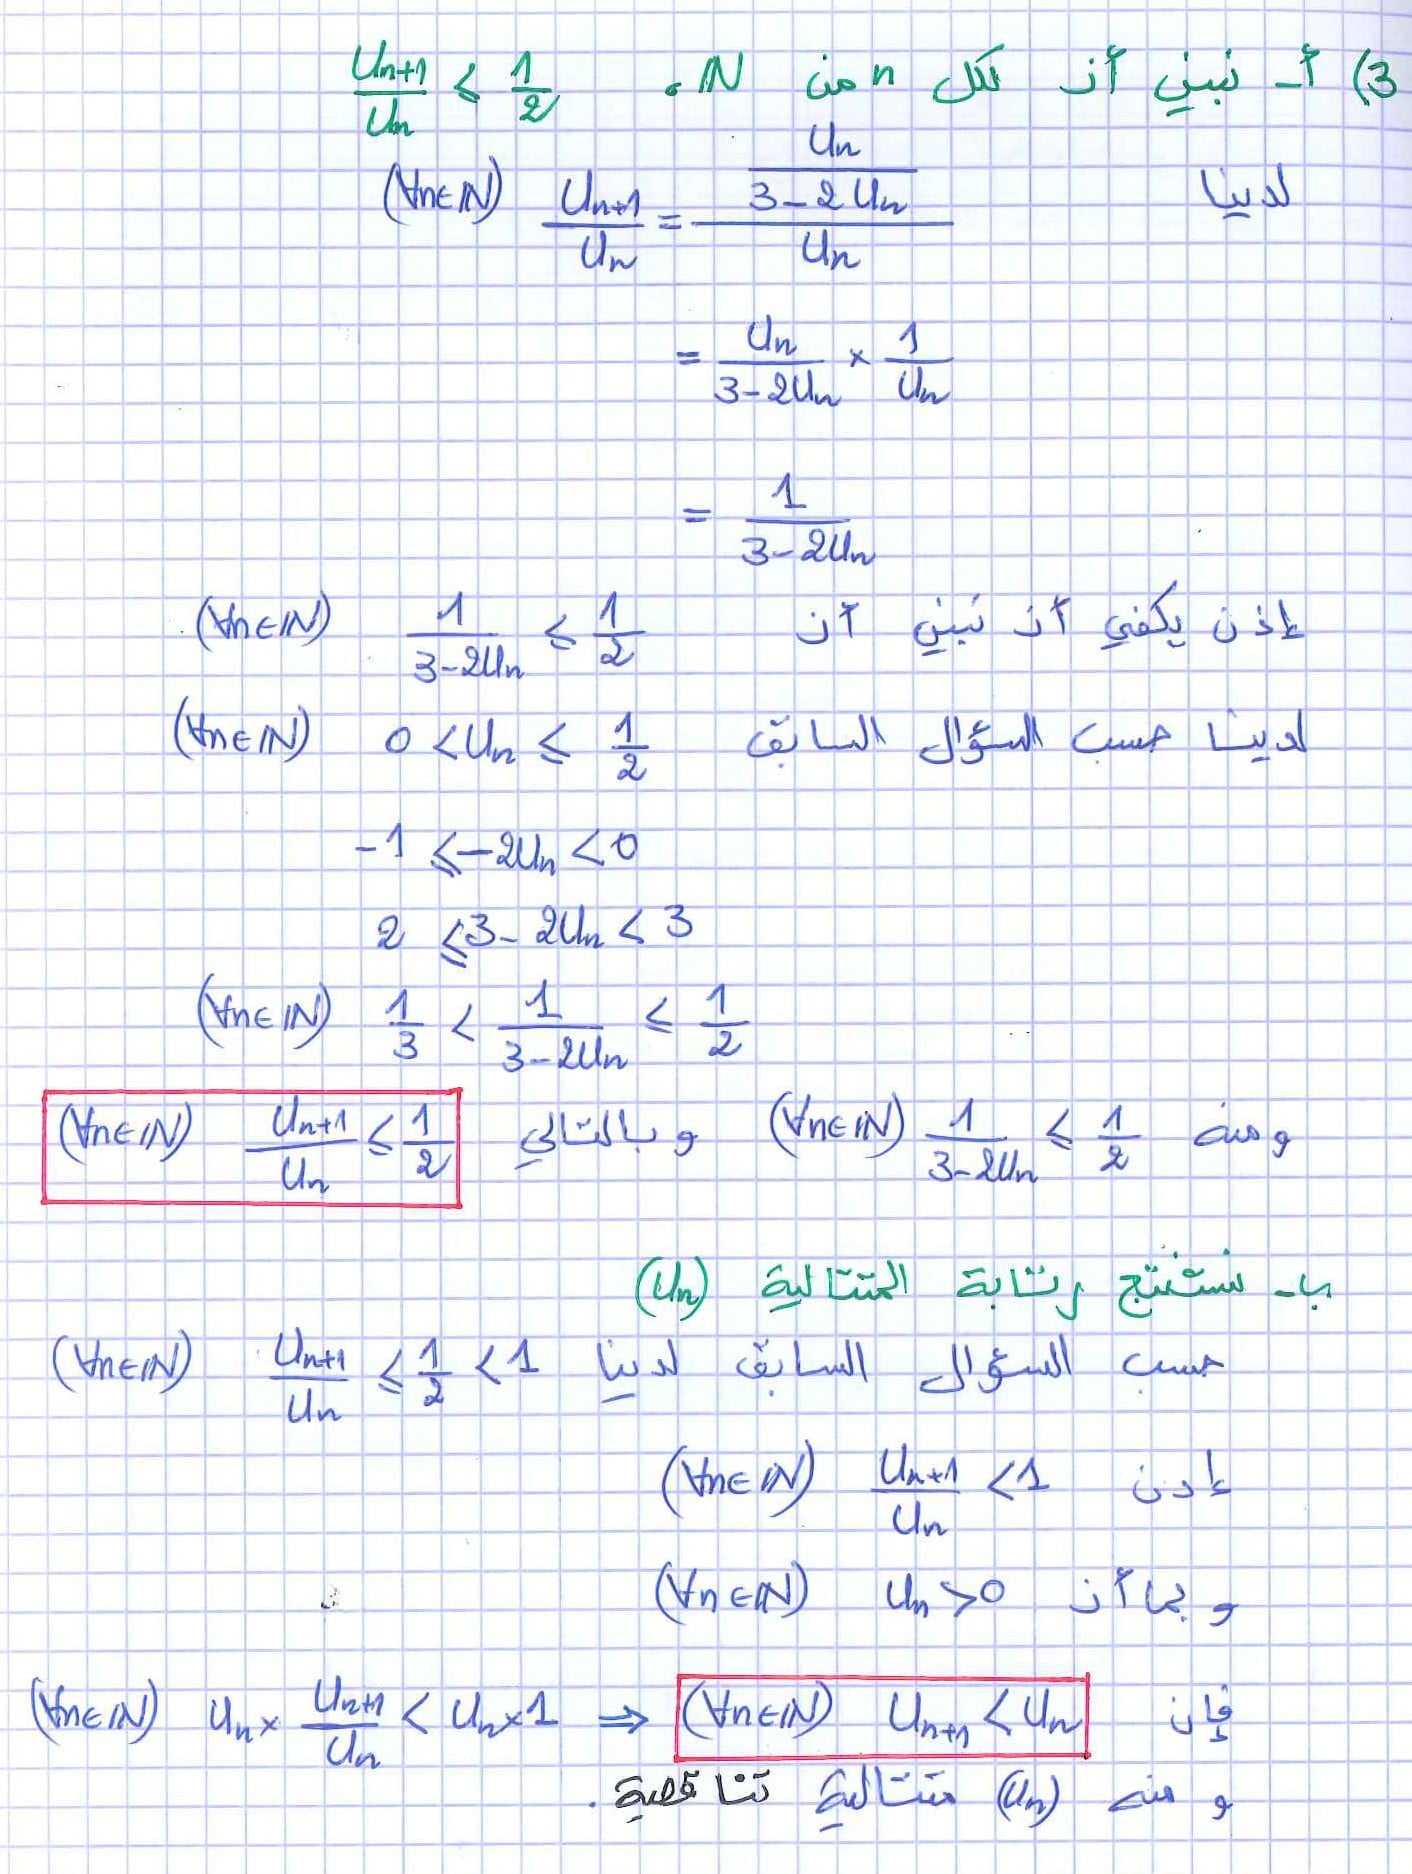 3) أ- نبين أن لكل n من ℕ، U_{n+1}/U_n ≤ 1/2
لدينا (∀n∈ℕ) U_{n+1}/U_n = (U_n/(3-2U_n))/U_n
= U_n/(3-2U_n) × 1/U_n
= 1/(3-2U_n)
إذن يكفي أن نبين أن 1/(3-2U_n) ≤ 1/2 (∀n∈ℕ).
لدينا حسب السؤال السابق 0 < U_n ≤ 1/2 (∀n∈ℕ)
-1 ≤ -2U_n < 0
2 ≤ 3-2U_n < 3
(∀n∈ℕ) 1/3 < 1/(3-2U_n) ≤ 1/2
ومنه (∀n∈ℕ) 1/(3-2U_n) ≤ 1/2 وبالتالي (∀n∈ℕ) U_{n+1}/U_n ≤ 1/2
ب- نستنتج رتابة المتتالية (U_n)
حسب السؤال السابق لدينا (∀n∈ℕ) U_{n+1}/U_n ≤ 1/2 < 1
إدن (∀n∈ℕ) U_{n+1}/U_n < 1
وبما أن (∀n∈ℕ) U_n > 0
فإن (∀n∈ℕ) U_n × U_{n+1}/U_n < U_n × 1 ⇒ (∀n∈ℕ) U_{n+1} < U_n
ومنه (U_n) متتالية تناقصية.